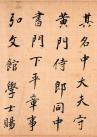 其名中大夫守
黄門侍郎同中
書門下平章事
弘文館學士賜